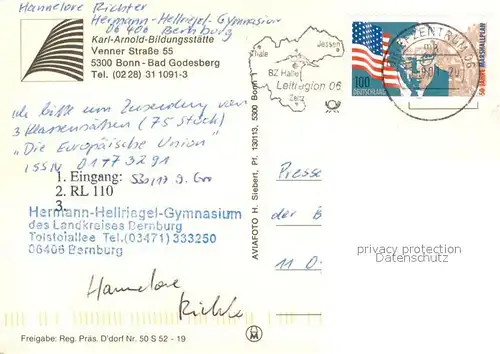 Hannelore Richter
Hermann-Hellriegel-Gymnasium
06400 Bernburg
Karl-Arnold-Bildungsstätte
Venner Straße 55
5300 Bonn - Bad Godesberg
Tel. (0228) 31 1091-3
Ich bitte um Zusendung von
3 Klassensätzen (75 Stück)
"Die Europäische Union"
ISSN 0177 3291
1. Eingang:
2. RL 110
3.
Hermann-Hellriegel-Gymnasium
des Landkreises Bernburg
Tolstoiallee Tel.(03471)333250
06406 Bernburg
Hannelore
Richter
Freigabe: Reg. Präs. D'dorf Nr. 50 S 52 - 19
AVIAFOTO H. Siebert, Pf. 130113, 5300 Bonn 1
Thale
Jessen
BZ Halle
Leitregion 06
Zeitz
100
DEUTSCHLAND
50 JAHRE MARSHALLPLAN
BRIEFZENTRUM 06
Presse
der B
11 0
privacy protection
Datenschutz